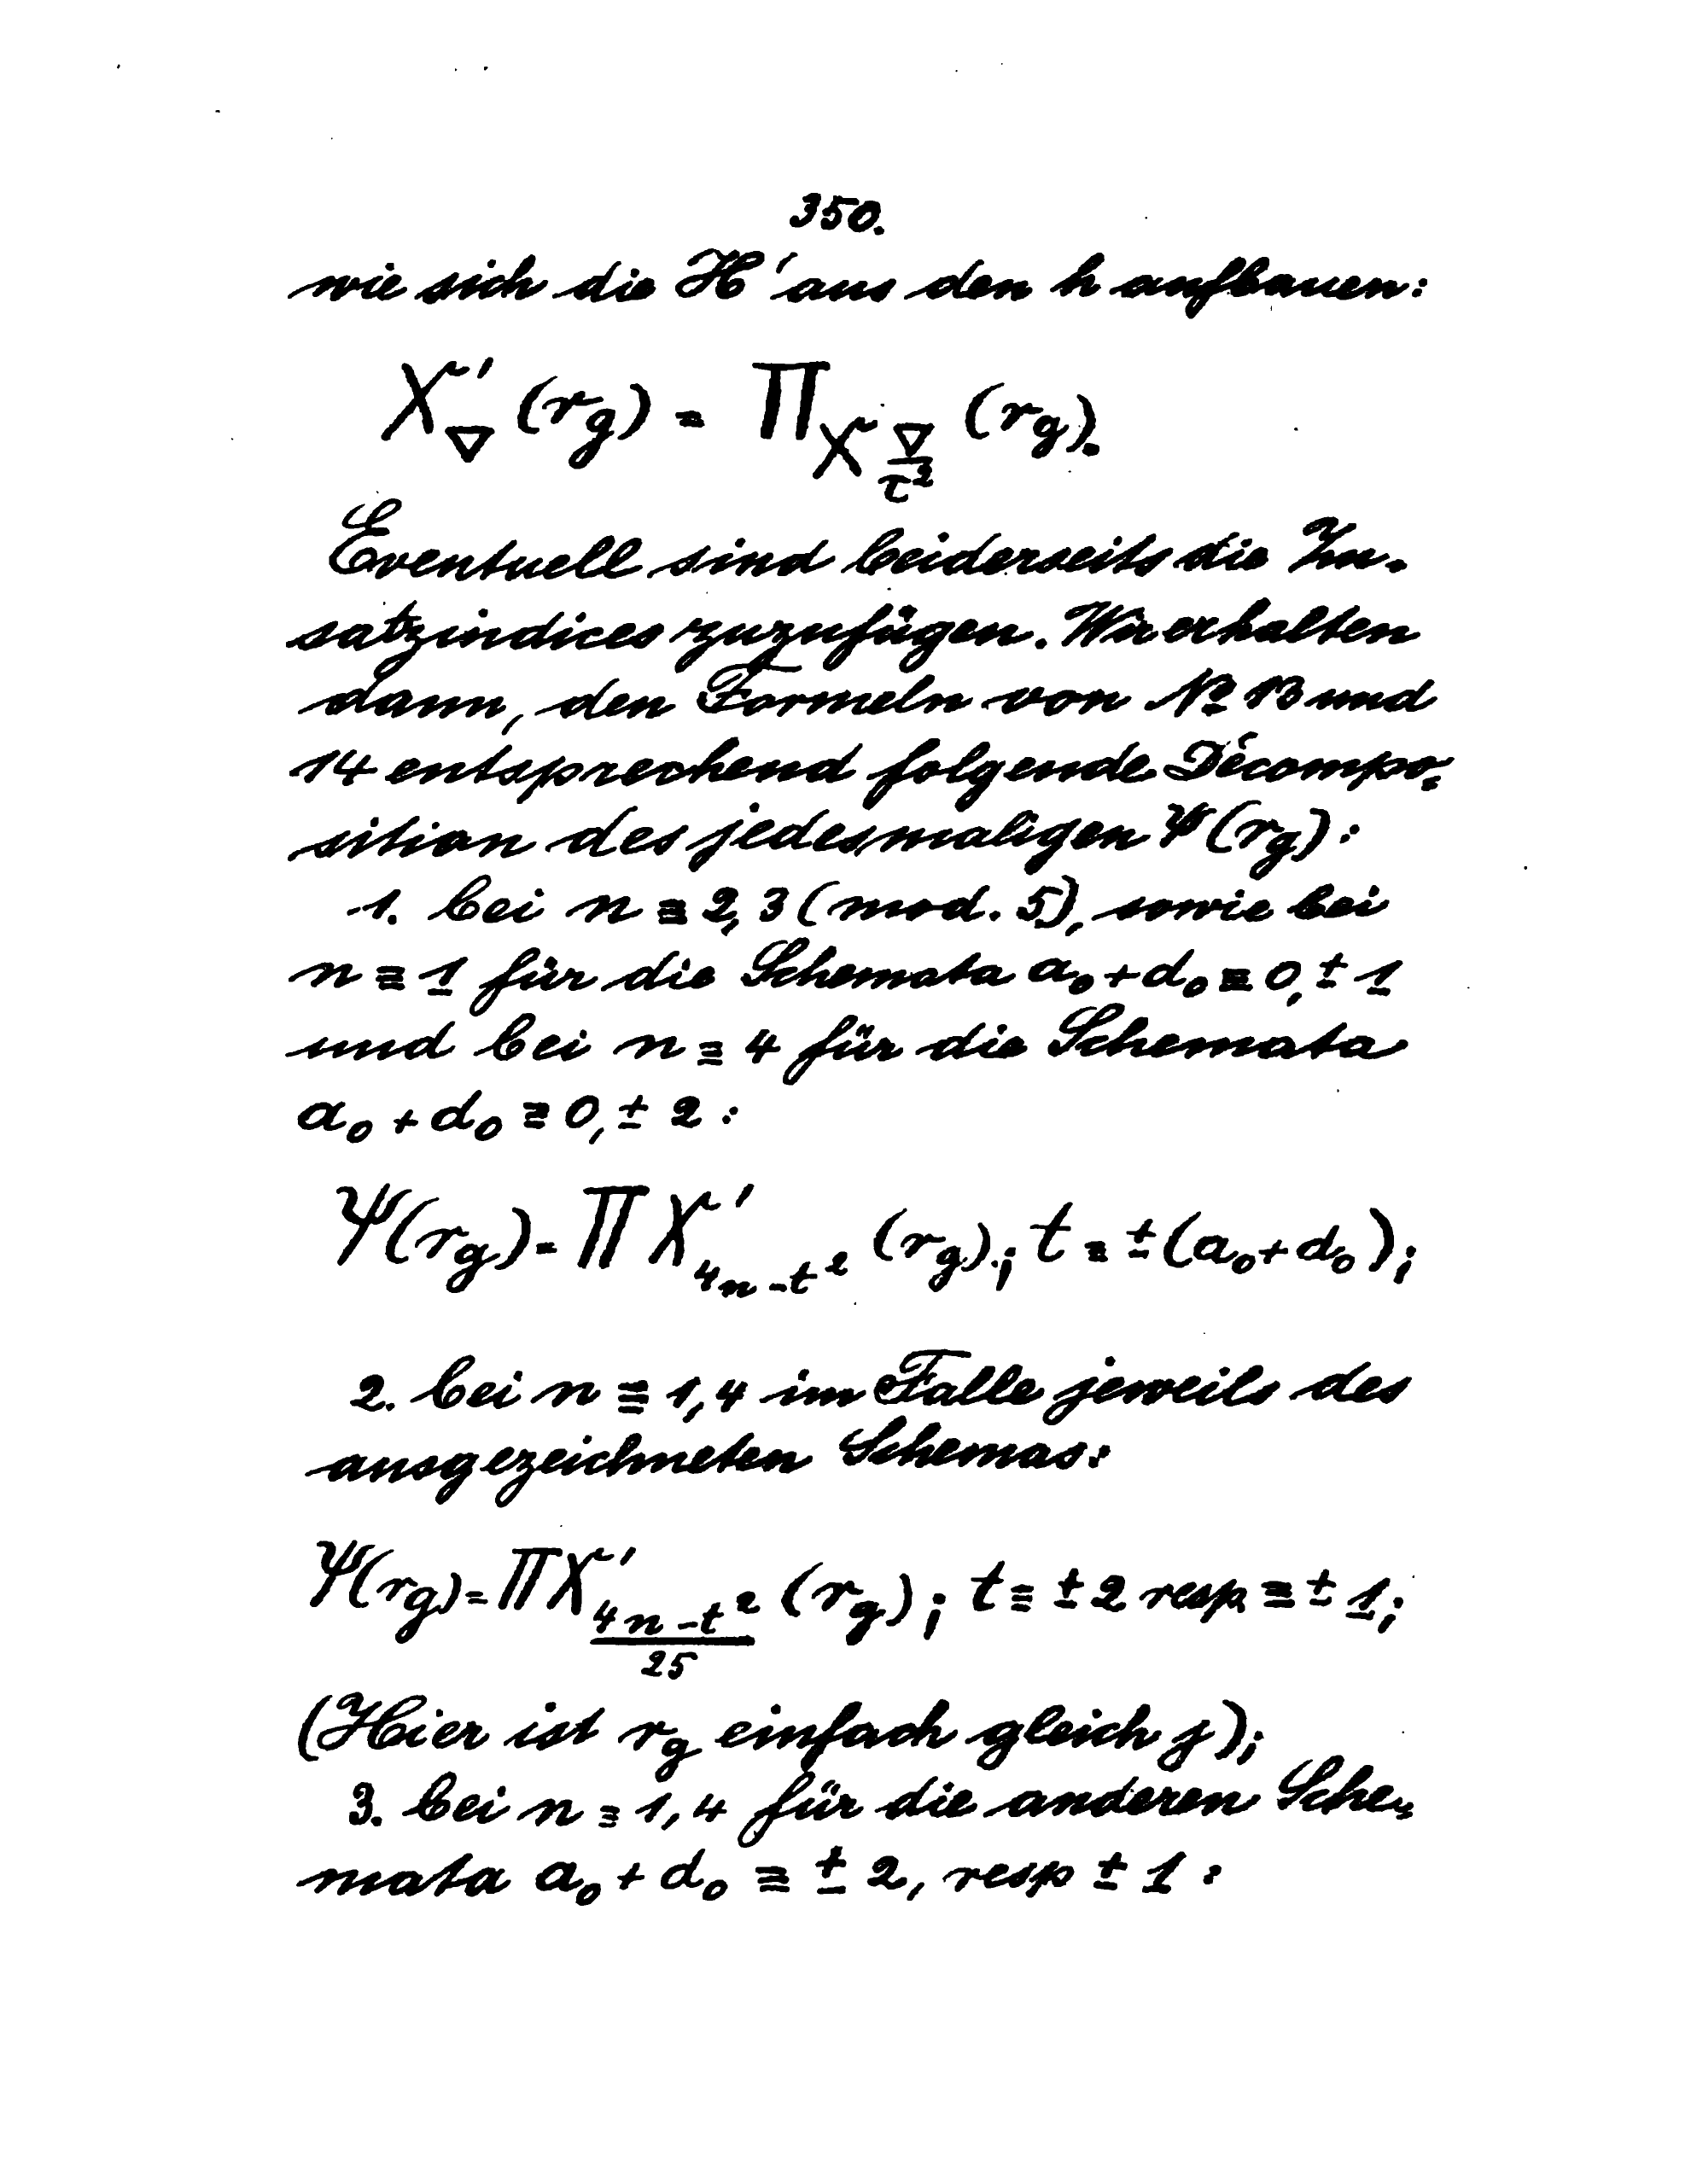 350.
wie sich die H' aus den h aufbauen:
X'_∇ (r_g) = ∏ χ_{∇/τ²} (r_g).
Eventuell sind beiderseits die Zu-
satzindices zuzufügen. Wir erhalten
dann, den Formeln von № 13 und
14 entsprechend folgende Décompo-
sition des jedesmaligen Ψ(r_g):
1. bei n ≡ 2, 3 (mod. 5), sowie bei
n ≡ 1 für die Schemata a₀ + d₀ ≡ 0, ± 1
und bei n ≡ 4 für die Schemata
a₀ + d₀ ≡ 0, ± 2 :
Ψ(r_g) = ∏ X'_{4n-t²} (r_g); t ≡ ±(a₀ + d₀);
2. bei n ≡ 1, 4 im Falle jeweils des
ausgezeichneten Schemas:
Ψ(r_g) = ∏ X'_{(4n-t²)/25} (r_g); t ≡ ± 2 resp. ≡ ± 1;
(Hier ist r_g einfach gleich j);
3. bei n ≡ 1, 4 für die anderen Sche-
mata a₀ + d₀ ≡ ± 2, resp ± 1 :